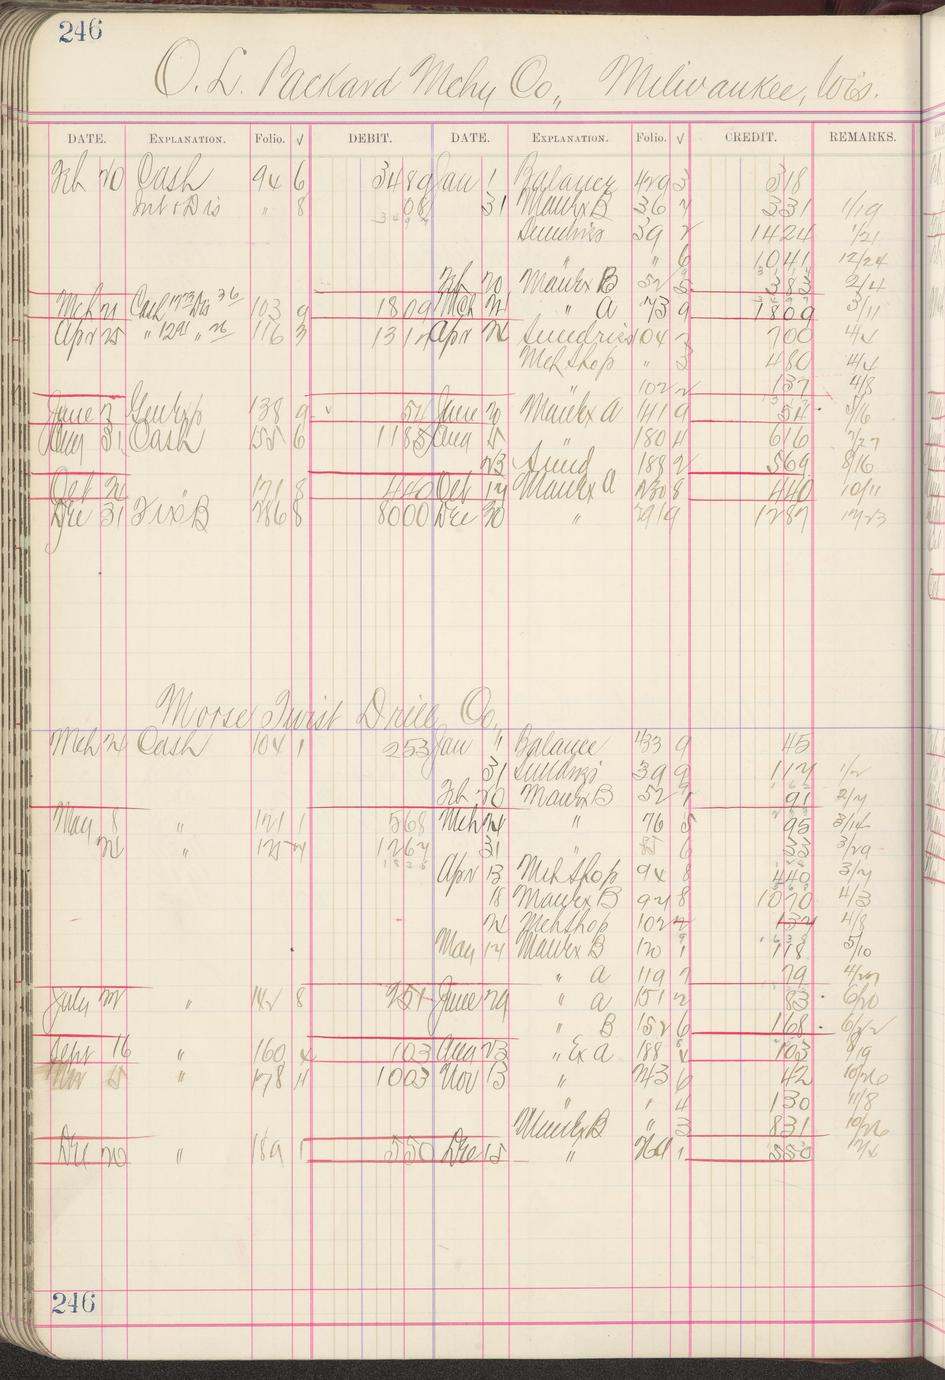 246
O. L. Packard Mchy Co., Milwaukee, Wis.
DATE. EXPLANATION. Folio. √ DEBIT. DATE. EXPLANATION. Folio. √ CREDIT. REMARKS.
Feb 20 Cash 94 6 3489 Jan 1 Balance 429 3 318
Int & Dis " 8 08 31 Manex B 36 7 331 1/19
Sundries 39 2 1424 1/21
" 6 1041 12/24
Feb 20 Manex B 52 5 383 2/4
Mch 21 Cash 1773 Dis 36 103 9 1809 Mch 21 " A 73 9 1809 3/11
Apr 25 " 1291 " 26 116 3 1317 Apr 24 Sundries 104 2 700 4/4
Mch Shop " 3 480 4/4
" 102 2 137 4/8
June 3 Gen Exp 138 9 54 June 20 Manex A 141 9 54 5/6
Aug 31 Cash 155 6 1185 Aug 5 " 180 4 616 7/27
23 Sund 188 2 569 8/16
Oct 21 " 171 8 440 Oct 17 Manex A 230 8 440 10/11
Dec 31 286 8 8000 Dec 20 " 291 9 1287 12/23
Morse Twist Drill Co.
Mch 24 Cash 104 1 253 Jan " Balance 433 9 45
31 Sundries 39 9 117 1/2
Feb 20 Manex B 52 1 91 2/7
May 8 " 121 1 568 Mch 24 " 76 5 95 3/14
24 " 125 4 1267 31 " 6 33 3/29
Apr 13 Mch Shop 94 8 440 3/7
18 Manex B 97 8 1070 4/3
24 Mch Shop 102 2 137 4/8
May 17 Manex B 120 1 118 5/10
" A 119 7 79 4/27
July 22 " 142 8 251 June 29 " A 151 2 83 6/20
" B 152 6 168 6/22
Sept 16 " 160 4 103 Aug 23 " Ex A 188 103 8/19
Nov 15 " 178 4 1003 Nov 13 " 243 6 42 10/26
" " 4 130 11/8
Manex B " 3 831 10/26
Dec 20 " 189 1 550 Dec 15 " 269 1 550 12/4
246